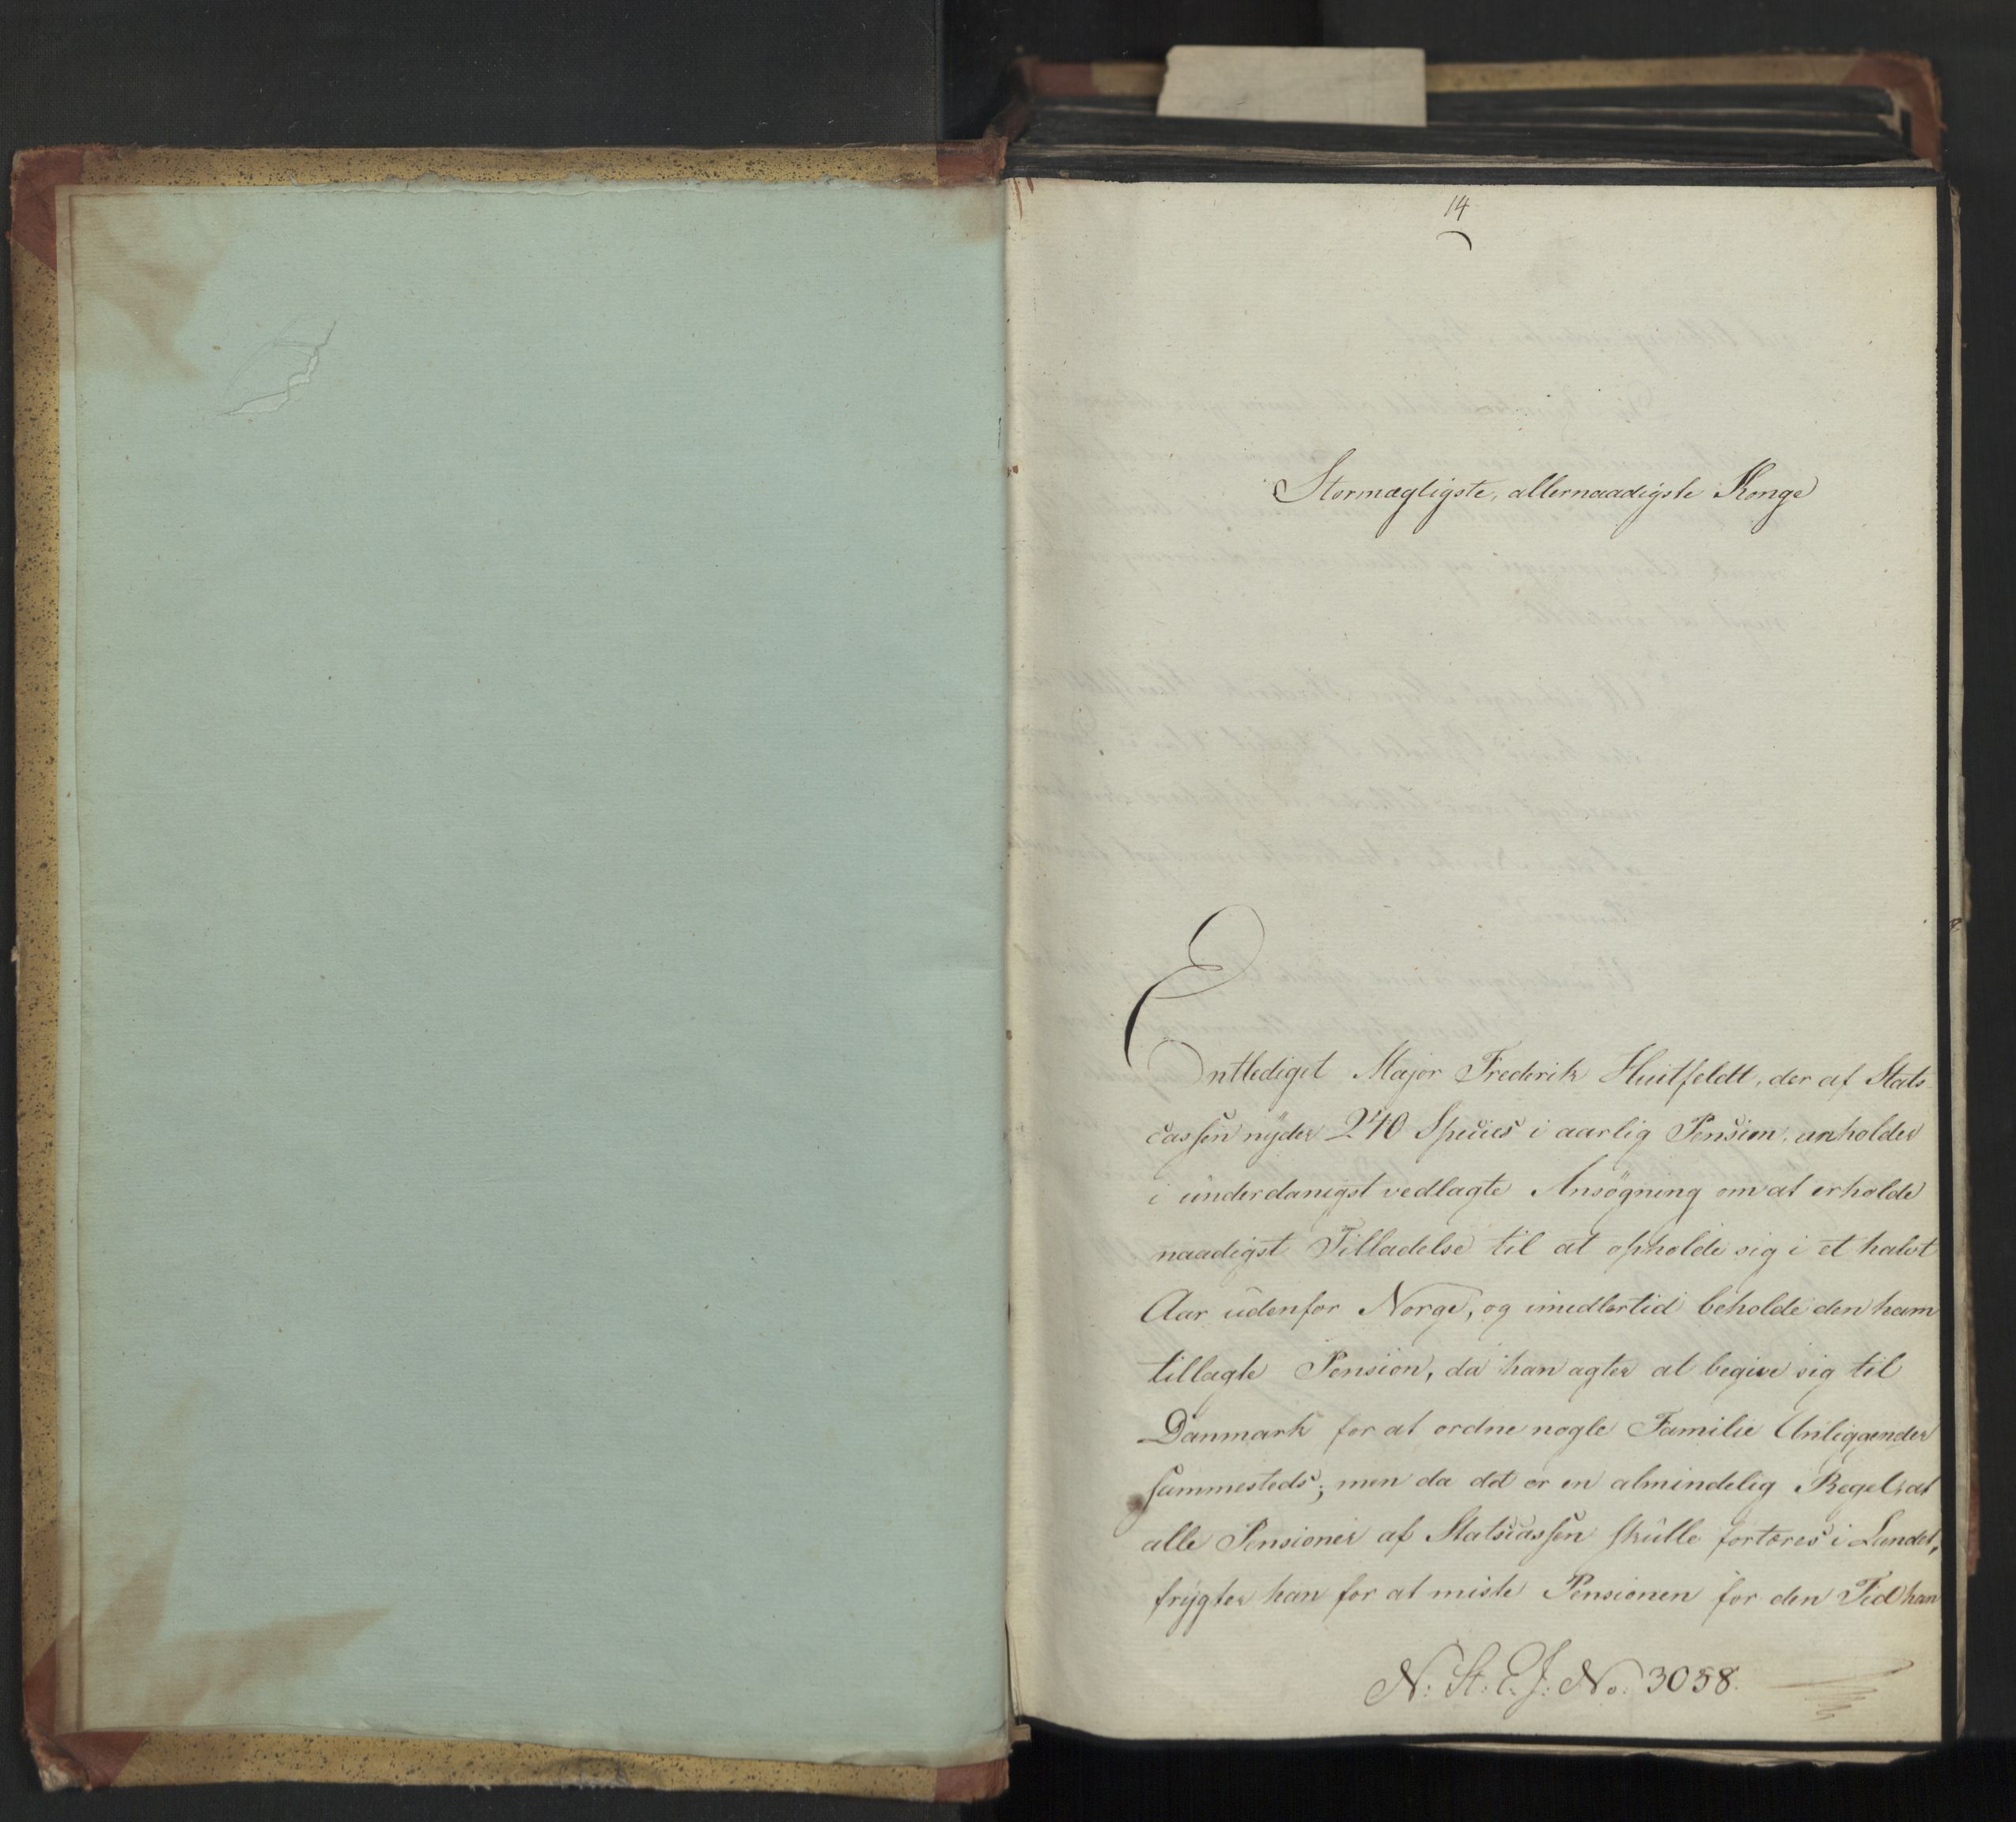 14
Stormægtigste, allernaadigste Konge
Entlediget Major Frederik Huitfeldt, der af Stats-
cassen nyder 240 Species i aarlig Pension, anholder
i underdanigst vedlagte Ansøgning om at erholde
naadigst Tilladelse til at opholde sig i et halvt
Aar udenfor Norge, og imidlertid beholde den ham
tillagte Pension, da han agter at begive sig til
Danmark for at ordne nogle Familie Anliggender
sammesteds; men da det er en almindelig Regel, at
alle Pensioner af Statscassen skulle fortæres i Landet,
frygter han for at miste Pensionen for den Tid han
N: St: E. J: No. 3058.